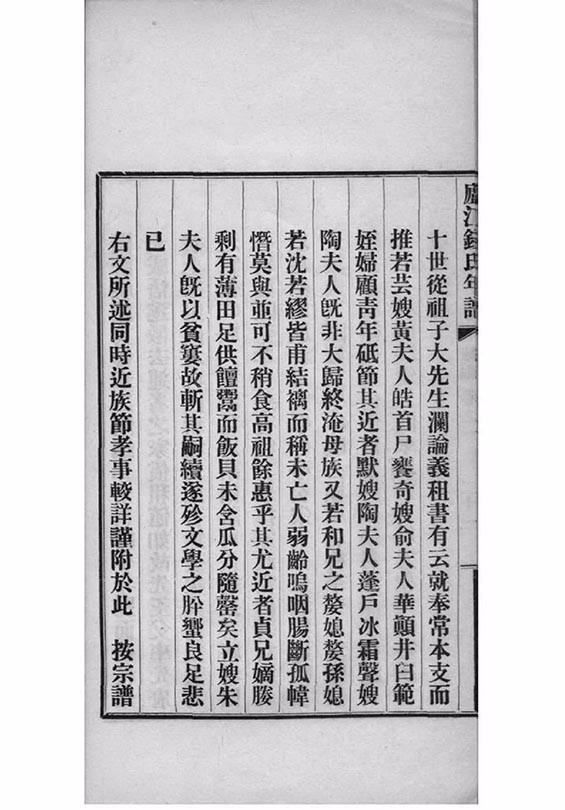 廬江錢氏年譜
十世從祖子大先生瀾論義租書有云就奉常本支而
推若芸嫂黃夫人皓首尸饔奇嫂俞夫人華顚井臼範
姪婦顧靑年砥節其近者默嫂陶夫人蓬戶冰霜聲嫂
陶夫人旣非大歸終淹母族又若和兄之嫠媳嫠孫媳
若沈若繆皆甫結褵而稱未亡人弱齡嗚咽腸斷孤幃
憯莫與並可不稍食高祖餘惠乎其尤近者貞兄嫡媵
剩有薄田足供饘鬻而飯貝未含瓜分隨罄矣立嫂朱
夫人旣以貧窶故斬其嗣續遂殄文學之脺蠁良足悲
已
右文所述同時近族節孝事較詳謹附於此　按宗譜